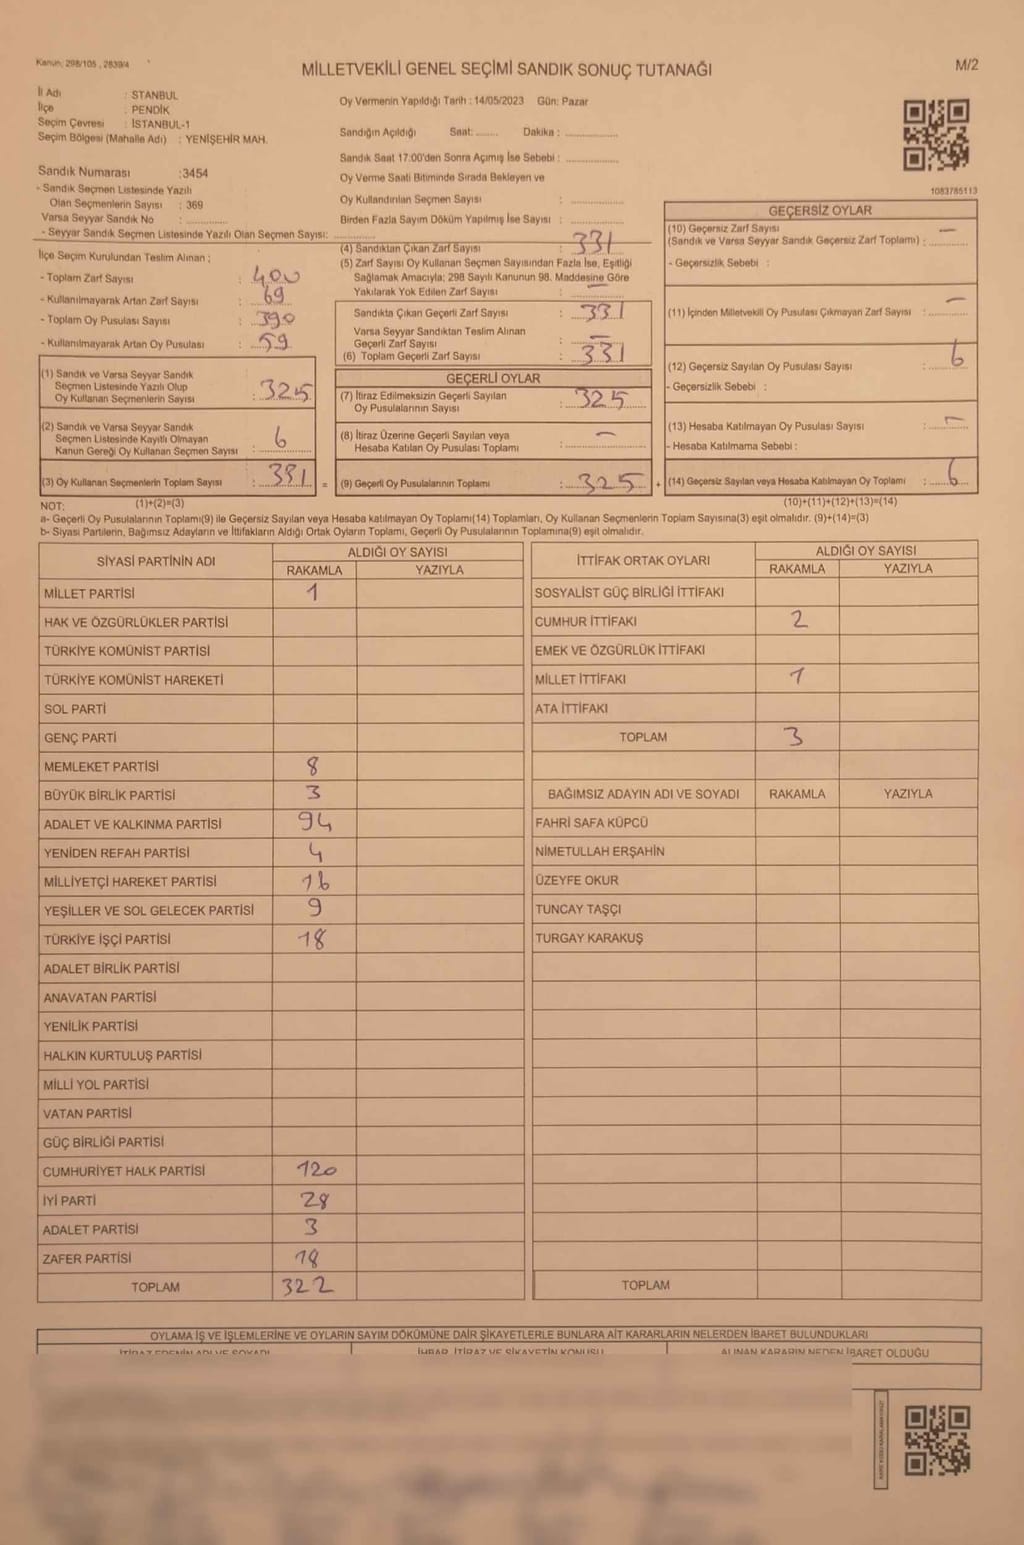 Kanun: 298/105 , 2839/4
MİLLETVEKİLİ GENEL SEÇİMİ SANDIK SONUÇ TUTANAĞI
M/2
İl Adı : STANBUL
İlçe : PENDİK
Seçim Çevresi : İSTANBUL-1
Seçim Bölgesi (Mahalle Adı) : YENİŞEHİR MAH.
Oy Vermenin Yapıldığı Tarih : 14/05/2023 Gün: Pazar
Sandığın Açıldığı Saat: ........ Dakika : ................
Sandık Saat 17:00'den Sonra Açımış İse Sebebi : ................
Oy Verme Saati Bitiminde Sırada Bekleyen ve
Oy Kullandırılan Seçmen Sayısı : ................
Birden Fazla Sayım Döküm Yapılmış İse Sayısı : ................
1083785113
Sandık Numarası :3454
- Sandık Seçmen Listesinde Yazılı
Olan Seçmenlerin Sayısı : 369
Varsa Seyyar Sandık No : ............
- Seyyar Sandık Seçmen Listesinde Yazılı Olan Seçmen Sayısı: ............
İlçe Seçim Kurulundan Teslim Alınan ;
- Toplam Zarf Sayısı : 400
- Kullanılmayarak Artan Zarf Sayısı : 69
- Toplam Oy Pusulası Sayısı : 390
- Kullanılmayarak Artan Oy Pusulası : 59
(1) Sandık ve Varsa Seyyar Sandık
Seçmen Listesinde Yazılı Olup
Oy Kullanan Seçmenlerin Sayısı : 325
(2) Sandık ve Varsa Seyyar Sandık
Seçmen Listesinde Kayıtlı Olmayan
Kanun Gereği Oy Kullanan Seçmen Sayısı : 6
(3) Oy Kullanan Seçmenlerin Toplam Sayısı : 331 =
(4) Sandıktan Çıkan Zarf Sayısı : 331
(5) Zarf Sayısı Oy Kullanan Seçmen Sayısından Fazla İse, Eşitliği
Sağlamak Amacıyla; 298 Sayılı Kanunun 98. Maddesine Göre
Yakılarak Yok Edilen Zarf Sayısı : —
Sandıkta Çıkan Geçerli Zarf Sayısı : 331
Varsa Seyyar Sandıktan Teslim Alınan
Geçerli Zarf Sayısı : —
(6) Toplam Geçerli Zarf Sayısı : 331
GEÇERLİ OYLAR
(7) İtiraz Edilmeksizin Geçerli Sayılan
Oy Pusulalarının Sayısı : 325
(8) İtiraz Üzerine Geçerli Sayılan veya
Hesaba Katılan Oy Pusulası Toplamı : —
(9) Geçerli Oy Pusulalarının Toplamı : 325 +
GEÇERSİZ OYLAR
(10) Geçersiz Zarf Sayısı —
(Sandık ve Varsa Seyyar Sandık Geçersiz Zarf Toplamı) : ............
- Geçersizlik Sebebi :
(11) İçinden Milletvekili Oy Pusulası Çıkmayan Zarf Sayısı : —
(12) Geçersiz Sayılan Oy Pusulası Sayısı : 6
- Geçersizlik Sebebi :
(13) Hesaba Katılmayan Oy Pusulası Sayısı : —
- Hesaba Katılmama Sebebi :
(14) Geçersiz Sayılan veya Hesaba Katılmayan Oy Toplamı : 6
NOT: (1)+(2)=(3) (10)+(11)+(12)+(13)=(14)
a- Geçerli Oy Pusulalarının Toplamı(9) ile Geçersiz Sayılan veya Hesaba katılmayan Oy Toplamı(14) Toplamları, Oy Kullanan Seçmenlerin Toplam Sayısına(3) eşit olmalıdır. (9)+(14)=(3)
b- Siyasi Partilerin, Bağımsız Adayların ve İttifakların Aldığı Ortak Oyların Toplamı, Geçerli Oy Pusulalarının Toplamına(9) eşit olmalıdır.
SİYASİ PARTİNİN ADI ALDIĞI OY SAYISI
RAKAMLA YAZIYLA
MİLLET PARTİSİ 1
HAK VE ÖZGÜRLÜKLER PARTİSİ
TÜRKİYE KOMÜNİST PARTİSİ
TÜRKİYE KOMÜNİST HAREKETİ
SOL PARTİ
GENÇ PARTİ
MEMLEKET PARTİSİ 8
BÜYÜK BİRLİK PARTİSİ 3
ADALET VE KALKINMA PARTİSİ 94
YENİDEN REFAH PARTİSİ 4
MİLLİYETÇİ HAREKET PARTİSİ 16
YEŞİLLER VE SOL GELECEK PARTİSİ 9
TÜRKİYE İŞÇİ PARTİSİ 18
ADALET BİRLİK PARTİSİ
ANAVATAN PARTİSİ
YENİLİK PARTİSİ
HALKIN KURTULUŞ PARTİSİ
MİLLİ YOL PARTİSİ
VATAN PARTİSİ
GÜÇ BİRLİĞİ PARTİSİ
CUMHURİYET HALK PARTİSİ 120
İYİ PARTİ 28
ADALET PARTİSİ 3
ZAFER PARTİSİ 18
TOPLAM 322
İTTİFAK ORTAK OYLARI ALDIĞI OY SAYISI
RAKAMLA YAZIYLA
SOSYALİST GÜÇ BİRLİĞİ İTTİFAKI
CUMHUR İTTİFAKI 2
EMEK VE ÖZGÜRLÜK İTTİFAKI
MİLLET İTTİFAKI 1
ATA İTTİFAKI
TOPLAM 3
BAĞIMSIZ ADAYIN ADI VE SOYADI RAKAMLA YAZIYLA
FAHRİ SAFA KÜPCÜ
NİMETULLAH ERŞAHİN
ÜZEYFE OKUR
TUNCAY TAŞÇI
TURGAY KARAKUŞ
TOPLAM
OYLAMA İŞ VE İŞLEMLERİNE VE OYLARIN SAYIM DÖKÜMÜNE DAİR ŞİKAYETLERLE BUNLARA AİT KARARLARIN NELERDEN İBARET BULUNDUKLARI
İTİRAZ EDENİN ADI VE SOYADI İHBAR, İTİRAZ VE ŞİKAYETİN KONUSU ALINAN KARARIN NEDEN İBARET OLDUĞU